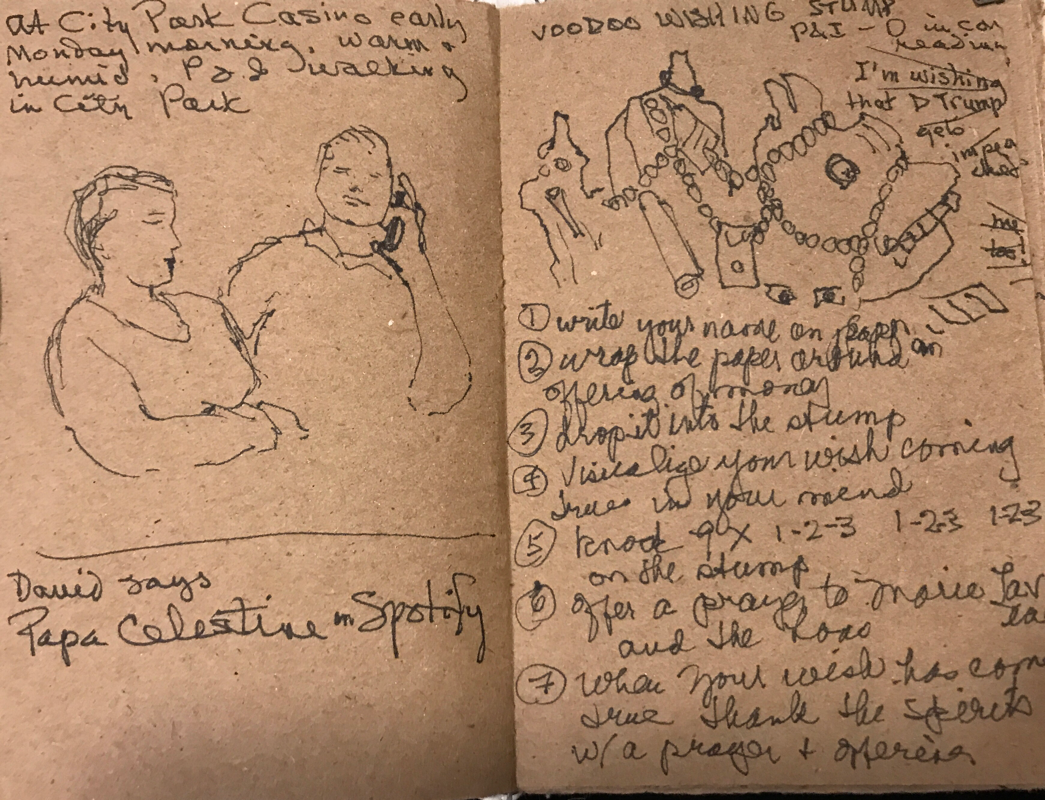 At City Park Casino early
Monday morning. Warm +
humid. P & J walking
in City Park
David says
Papa Celestine on Spotify
VOODOO WISHING STUMP
P & I - O in car
reading
I'm wishing
that D Trump
gets
impea
ched
me
too!
① write your name on paper
② wrap the paper around an
offering of money
③ drop it into the stump
④ visualize your wish coming
true in your mind
⑤ knock 9X 1-2-3 1-2-3 1-2-3
on the stump
⑥ offer a prayer to Marie Lav
eau
and the loas
⑦ when your wish has come
true thank the spirits
w/ a prayer + offering